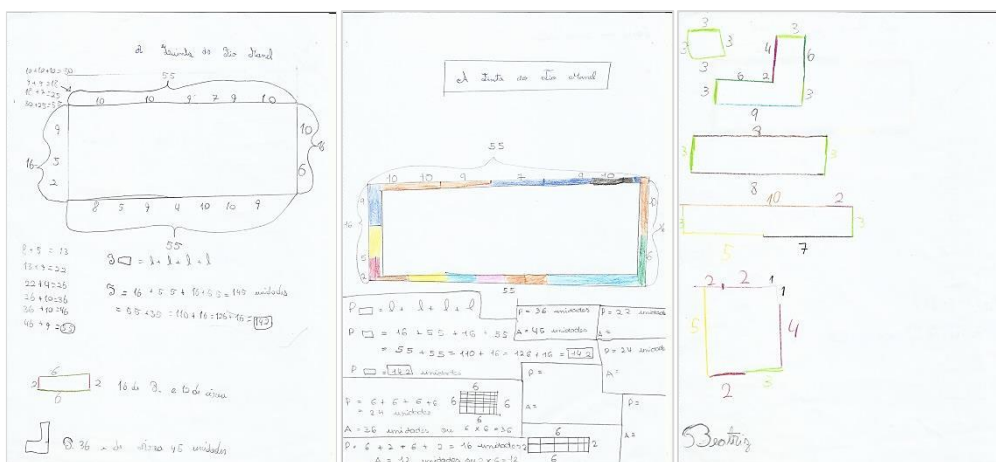 A Quinta do Tio Manel
10+10+10=30
9+9=18
18+7=25
30+25=55
55
10 10 9 7 9 10
9
16
5
2
10
16
6
8 5 9 4 10 10 9
55
8+5=13
13+9=22
22+4=26
26+10=36
36+10=46
46+9=55
P = l + l + l + l
P = 16 + 55 + 16 + 55 = 142 unidades
= 55+55=110+16=126+16=142
6
2 2
6
16 de P. e 12 de área
P. 36 e de área 45 unidades
A Quinta do Tio Manel
55
10 10 9 7 9 10
9
16
5
2
10
16
6
55
P = l + l + l + l
P = 16 + 55 + 16 + 55
= 55 + 55 = 110 + 16 = 126 + 16 = 142
P = 142 unidades
P = 36 unidades
A = 45 unidades
P = 22 unidades
A =
P = 24 unidades
A =
P =
A =
P =
A =
P = 6 + 6 + 6 + 6
= 24 unidades
6
6
6
A = 36 unidades ou 6 x 6 = 36
P = 6 + 2 + 6 + 2 = 16 unidades
6
2
6
A = 12 unidades ou 2 x 6 = 12
3
3 3
3
3
4 6
6 2
3 3
9
8
3 3
8
10 2
3 3
5 7
2 2 1
1
5 4
2 3
Beatriz